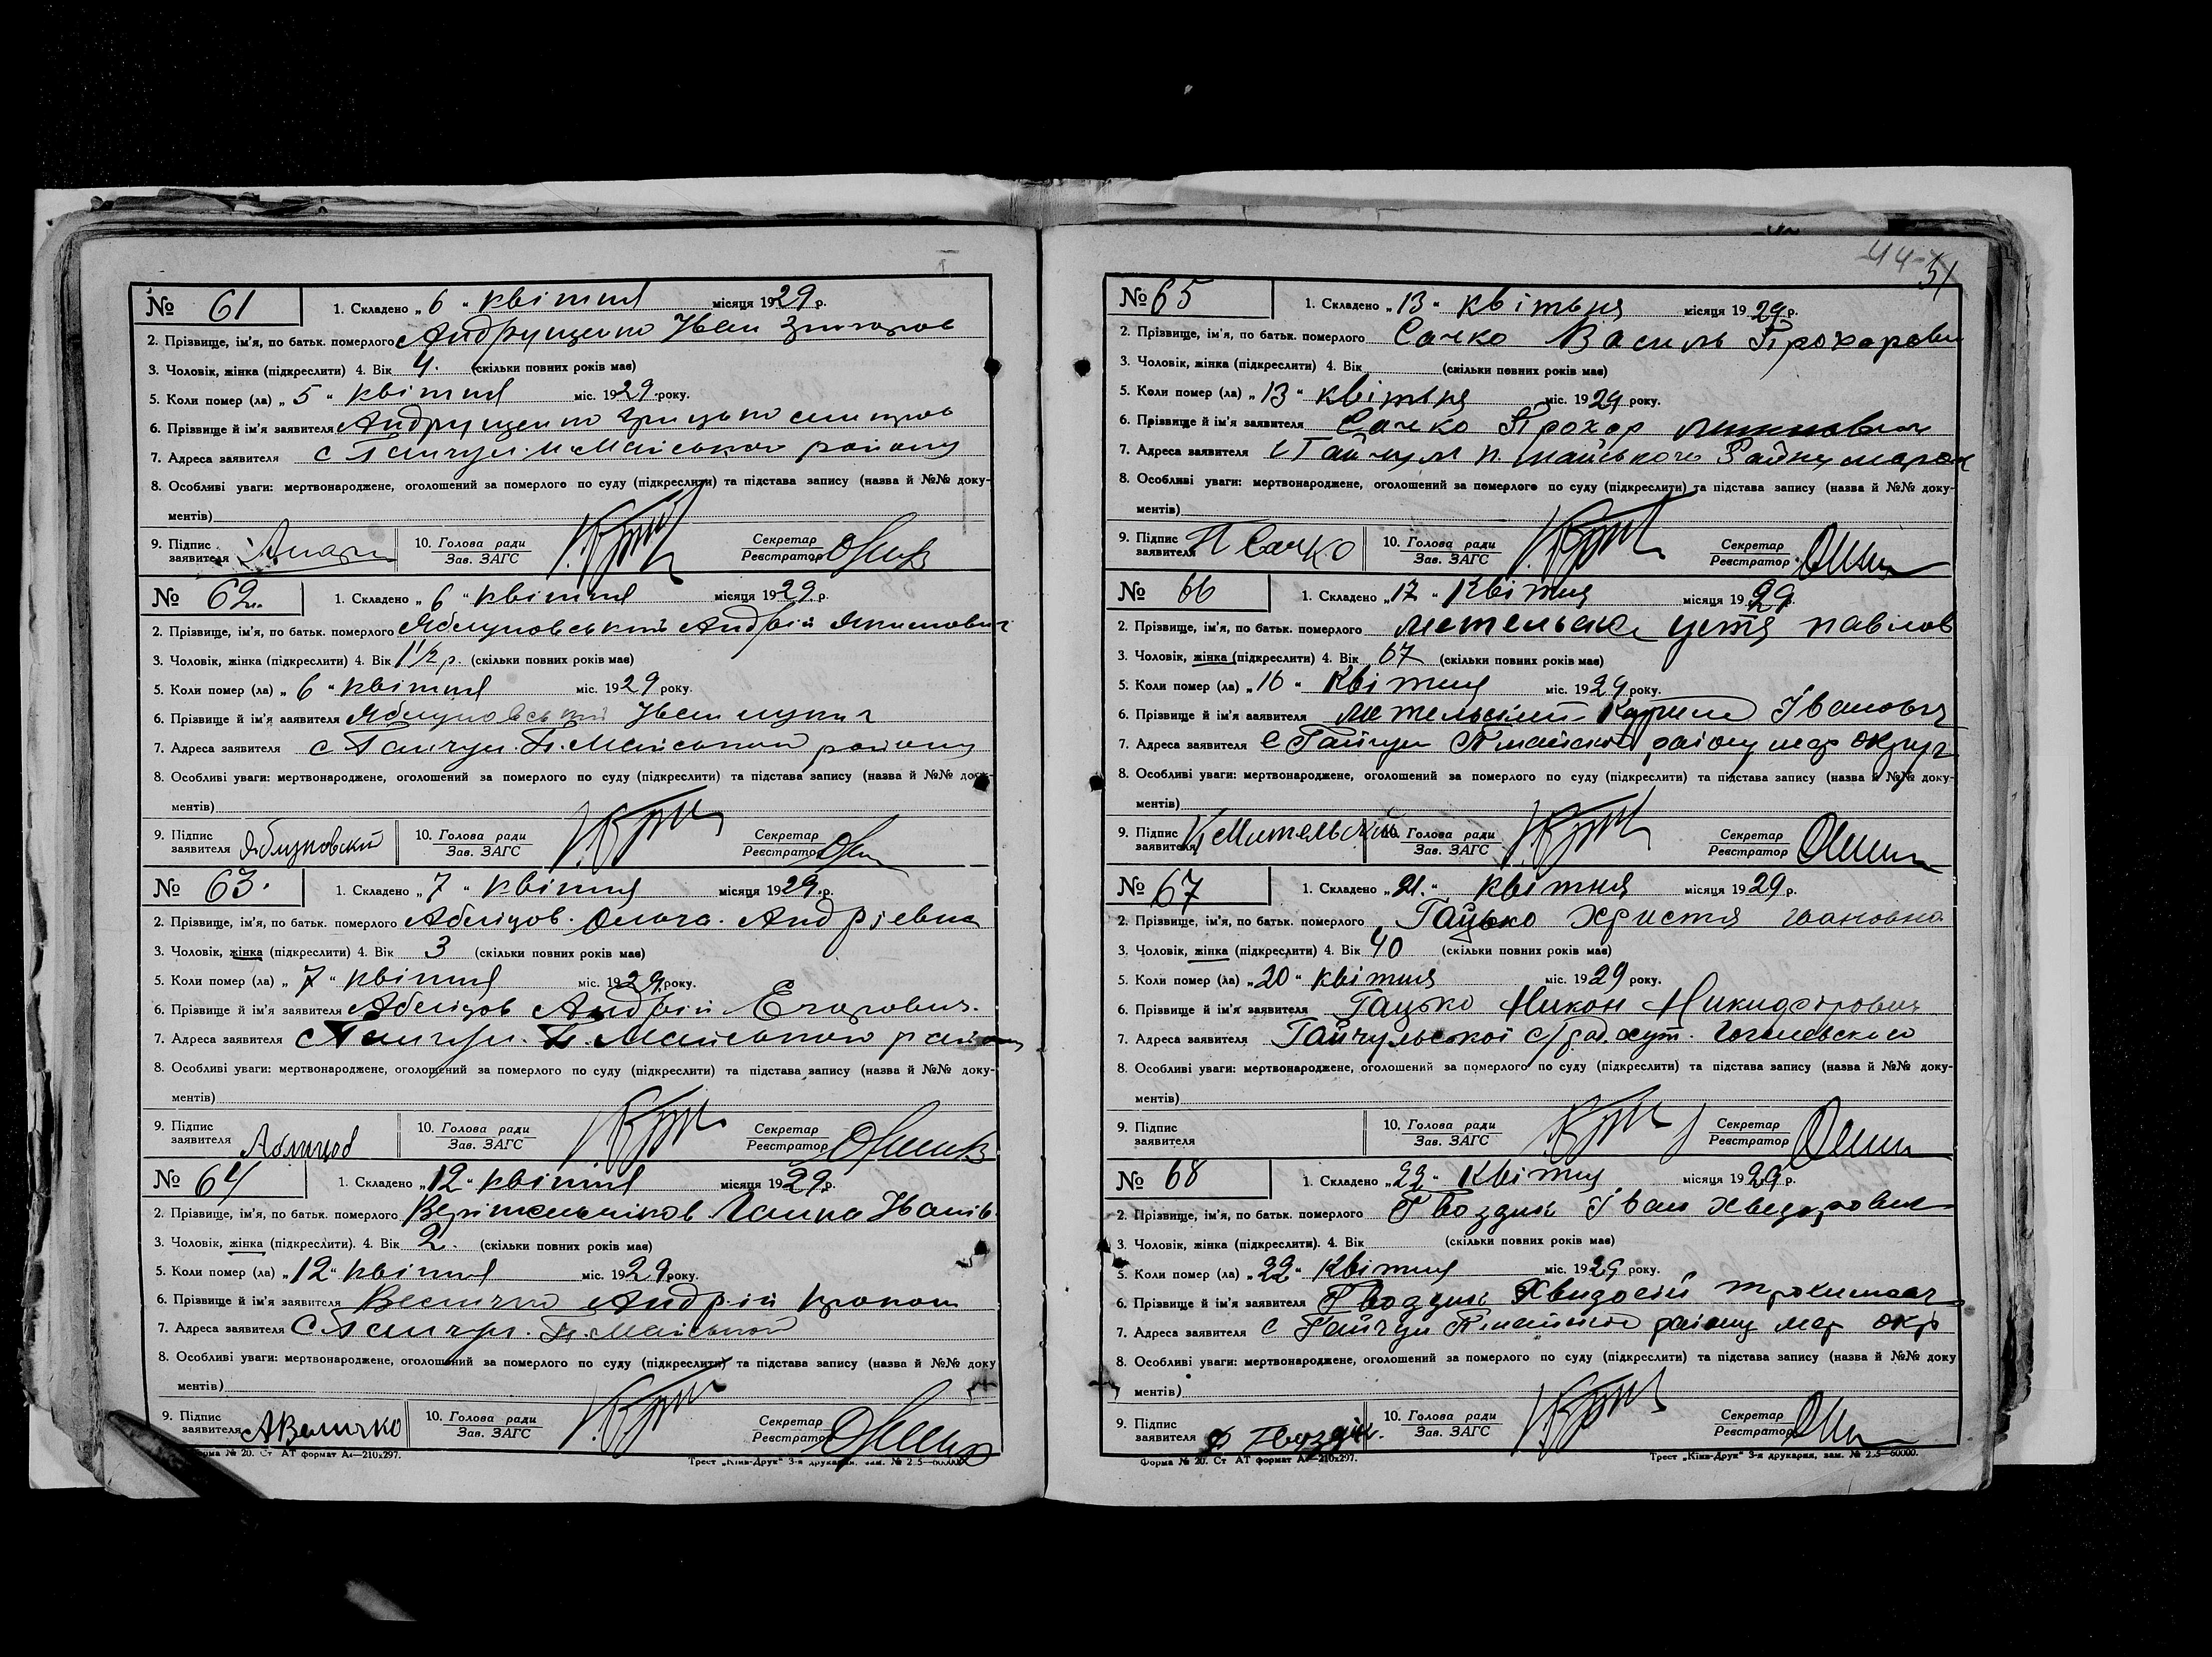 № 61 1. Складено „ 6 " квітня місяця 1929 р.
2. Прізвище, ім'я, по батьк. померлого Андрущенко Іван
3. Чоловік, жінка (підкреслити) 4. Вік 4. (скільки повних років має)
5. Коли помер (ла) „ 5 " квітня міс. 1929 року.
6. Прізвище й ім'я заявителя Андрущенко Грицько
7. Адреса заявителя с Гайчул. П. Майського району
8. Особливі уваги: мертвонароджене, оголошений за померлого по суду (підкреслити) та підстава запису (назва й №№ доку-
ментів)
9. Підпис заявителя 10. Голова ради Зав. ЗАГС Секретар Реєстратор
№ 62 1. Складено „ 6 " квітня місяця 1929 р.
2. Прізвище, ім'я, по батьк. померлого Яблуновський Андрій
3. Чоловік, жінка (підкреслити) 4. Вік 1 1/2 р. (скільки повних років має)
5. Коли помер (ла) „ 6 " квітня міс. 1929 року.
6. Прізвище й ім'я заявителя Яблуновський Іван
7. Адреса заявителя с Гайчул. П. Майського району
8. Особливі уваги: мертвонароджене, оголошений за померлого по суду (підкреслити) та підстава запису (назва й №№ доку-
ментів)
9. Підпис заявителя Яблуновский 10. Голова ради Зав. ЗАГС Секретар Реєстратор
№ 63. 1. Складено „ 7 " квітня місяця 1929 р.
2. Прізвище, ім'я, по батьк. померлого Абліцов. Ольга. Андріевна
3. Чоловік, жінка (підкреслити) 4. Вік 3 (скільки повних років має)
5. Коли помер (ла) „ 7 " квітня міс. 1929 року.
6. Прізвище й ім'я заявителя Абліцов Андрій Егорович.
7. Адреса заявителя с Гайчул. П. Майського району
8. Особливі уваги: мертвонароджене, оголошений за померлого по суду (підкреслити) та підстава запису (назва й №№ доку-
ментів)
9. Підпис заявителя Аблицов 10. Голова ради Зав. ЗАГС Секретар Реєстратор
№ 64 1. Складено „ 12 " квітня місяця 1929 р.
2. Прізвище, ім'я, по батьк. померлого Ганна Іванів.
3. Чоловік, жінка (підкреслити). 4. Вік 2. (скільки повних років має)
5. Коли помер (ла) „ 12 " квітня міс. 1929 року.
6. Прізвище й ім'я заявителя Величко Андрій
7. Адреса заявителя С Гайчул. П. Майської
8. Особливі уваги: мертвонароджене, оголошений за померлого по суду (підкреслити) та підстава запису (назва й №№ доку
ментів)
9. Підпис заявителя А Величко 10. Голова ради Зав. ЗАГС Секретар Реєстратор
Форма № 20. Ст АТ формат А4—210x297. Трест „Київ-Друк" 3-я друкарня, зам. № 2.5—60000.
44
51
№ 65 1. Складено „ 13 " квітьня місяця 1929 р.
2. Прізвище, ім'я, по батьк. померлого Сачко Василь Прохорович
3. Чоловік, жінка (підкреслити) 4. Вік (скільки повних років має)
5. Коли помер (ла) „ 13 " квітьня міс. 1929 року.
6. Прізвище й ім'я заявителя Сачко Прохор
7. Адреса заявителя с Гайчул П. майського Району
8. Особливі уваги: мертвонароджене, оголошений за померлого по суду (підкреслити) та підстава запису (назва й №№ доку-
ментів)
9. Підпис заявителя П Сачко 10. Голова ради Зав. ЗАГС Секретар Реєстратор
№ 66 1. Складено „ 17 " Квітня місяця 1929 р.
2. Прізвище, ім'я, по батьк. померлого Метельска Устя павлов
3. Чоловік, жінка (підкреслити) 4. Вік 67 (скільки повних років має)
5. Коли помер (ла) „ 16 " Квітня міс. 1929 року.
6. Прізвище й ім'я заявителя Метельский Іванович
7. Адреса заявителя с Гайчул П майской району мар округ
8. Особливі уваги: мертвонароджене, оголошений за померлого по суду (підкреслити) та підстава запису (назва й №№ доку-
ментів)
9. Підпис заявителя К Мительский 10. Голова ради Зав. ЗАГС Секретар Реєстратор
№ 67 1. Складено „ 21. " квітня місяця 1929 р.
2. Прізвище, ім'я, по батьк. померлого Гацько Христя івановна
3. Чоловік, жінка (підкреслити) 4. Вік 40 (скільки повних років має)
5. Коли помер (ла) „ 20 " квітня міс. 1929 року.
6. Прізвище й ім'я заявителя Гацько Никон Никифорович
7. Адреса заявителя Гайчульської с/рад. хут. Гоголевского
8. Особливі уваги: мертвонароджене, оголошений за померлого по суду (підкреслити) та підстава запису (назва й №№ доку-
ментів)
9. Підпис заявителя 10. Голова ради Зав. ЗАГС Секретар Реєстратор
№ 68 1. Складено „ 22 " Квітня місяця 1929 р.
2. Прізвище, ім'я, по батьк. померлого Гвоздик Іван Хведорович
3. Чоловік, жінка (підкреслити). 4. Вік (скільки повних років має)
5. Коли помер (ла) „ 22 " Квітня міс. 1929 року.
6. Прізвище й ім'я заявителя Гвоздик
7. Адреса заявителя с Гайчул П майської району мар окр
8. Особливі уваги: мертвонароджене, оголошений за померлого по суду (підкреслити) та підстава запису (назва й №№ доку
ментів)
9. Підпис заявителя Ф Гвоздик. 10. Голова ради Зав. ЗАГС Секретар Реєстратор
Форма № 20. Ст АТ формат А4—210x297. Трест „Київ-Друк" 3-я друкарня, зам. № 2.5—60000.